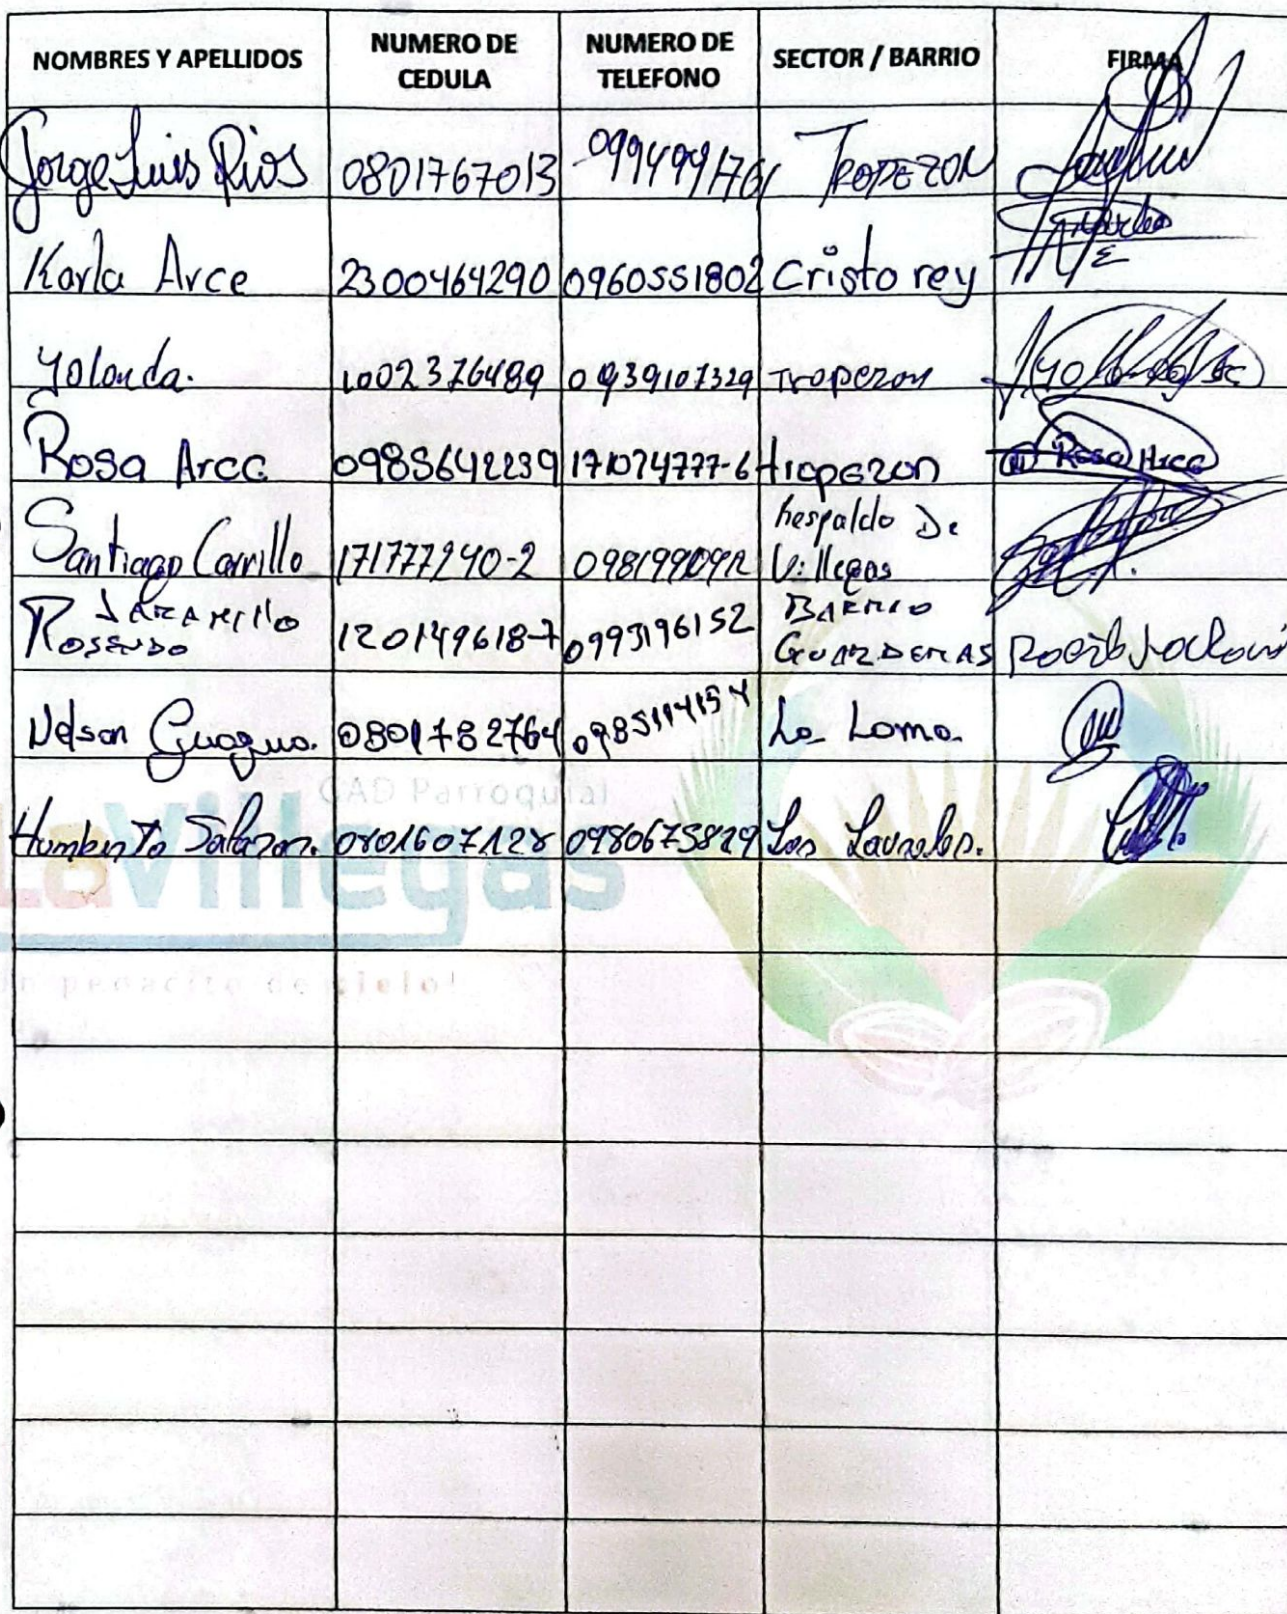 NOMBRES Y APELLIDOS NUMERO DE CEDULA NUMERO DE TELEFONO SECTOR / BARRIO FIRMA
Jorge Luis Rios 0801767013 0994991761 TROPEZON
Karla Arce 2300464290 0960551802 Cristo rey
Yolanda. 1002376489 0939107329 Tropezon
Rosa Arce 0985642239 171074777-6 tropezon Rosa Arce
Santiago Carrillo 171777240-2 Respaldo De Villegas
JARAMILLO ROSENDO 120149618-7 0993196152 BARRIO GUARDERAS
Nelson 0801782764 La Loma.
Humberto Salazar. 0801607128 0980675829 Los Laureles.
GAD Parroquial
La Villegas
un pedacito de cielo!